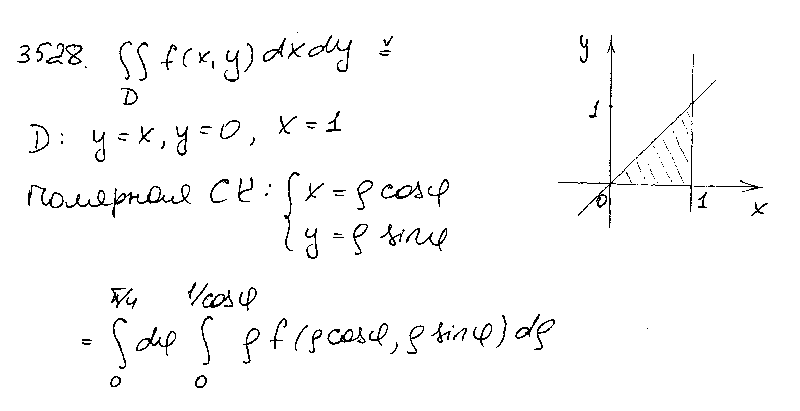 3528. ∬ f(x,y) dx dy =
D
D: y = x, y = 0, x = 1
полярная СК: { x = ρ cosφ
y = ρ sinφ
π/4 1/cosφ
= ∫ dφ ∫ ρ f(ρ cosφ, ρ sinφ) dρ
0 0
y
1
0 1 x